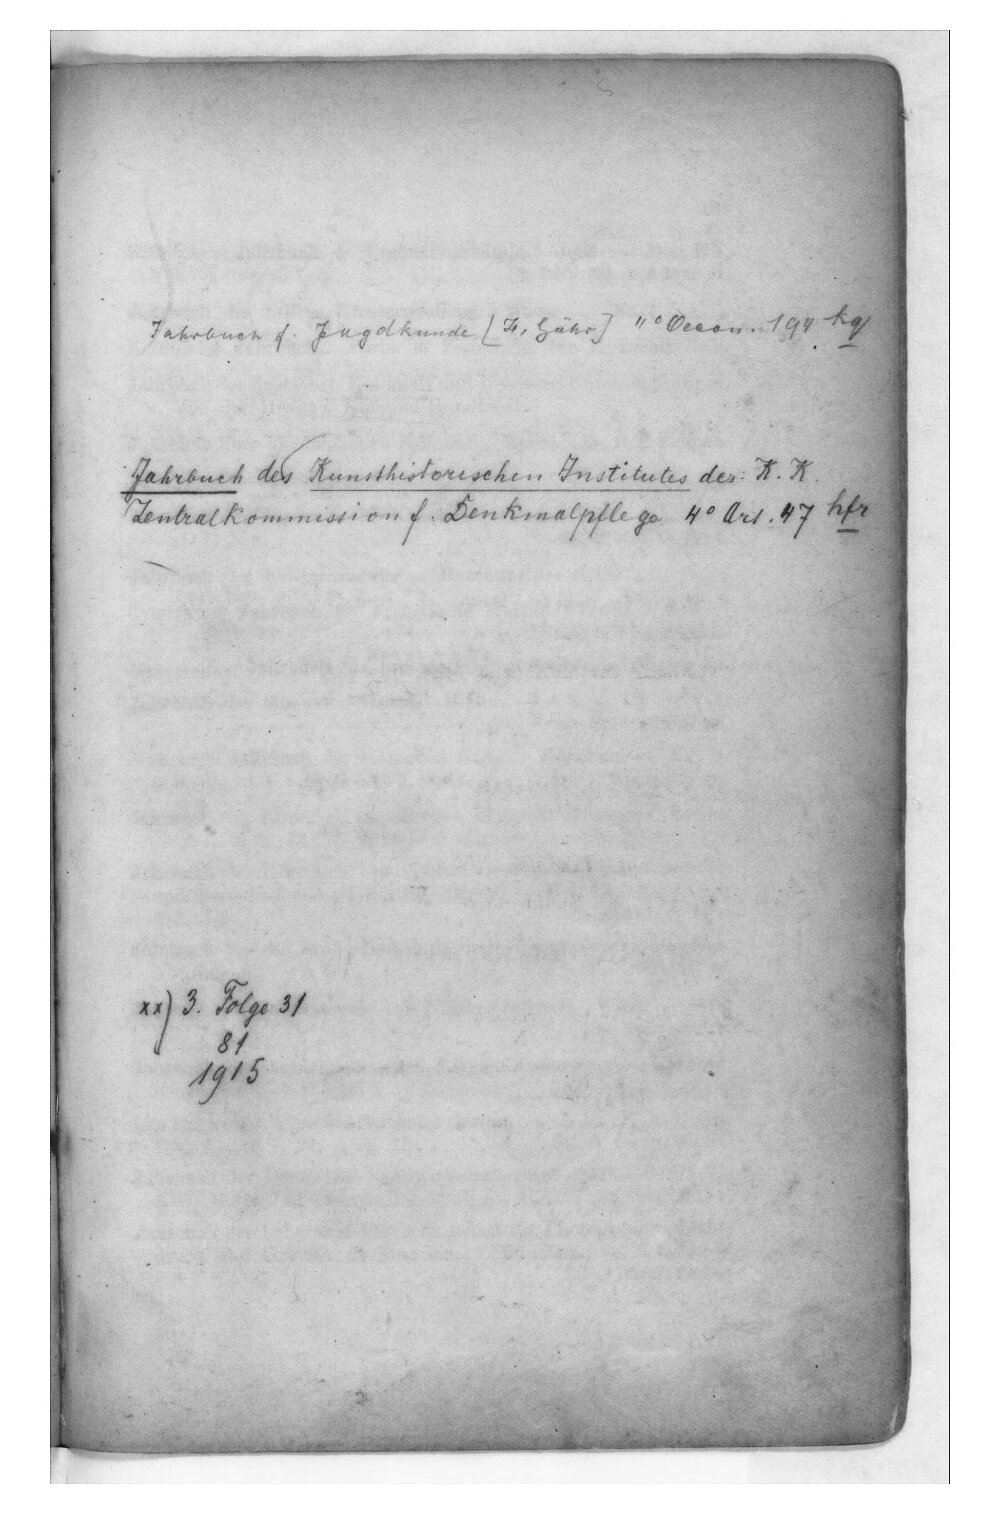 Jahrbuch f. Jagdkunde 4° Oecon. 194 hq
Jahrbuch des Kunsthistorischen Institutes der K. K.
Zentralkommission f. Denkmalpflege 4° Art. 47 hfr
xx) 3. Folge 31
81
1915